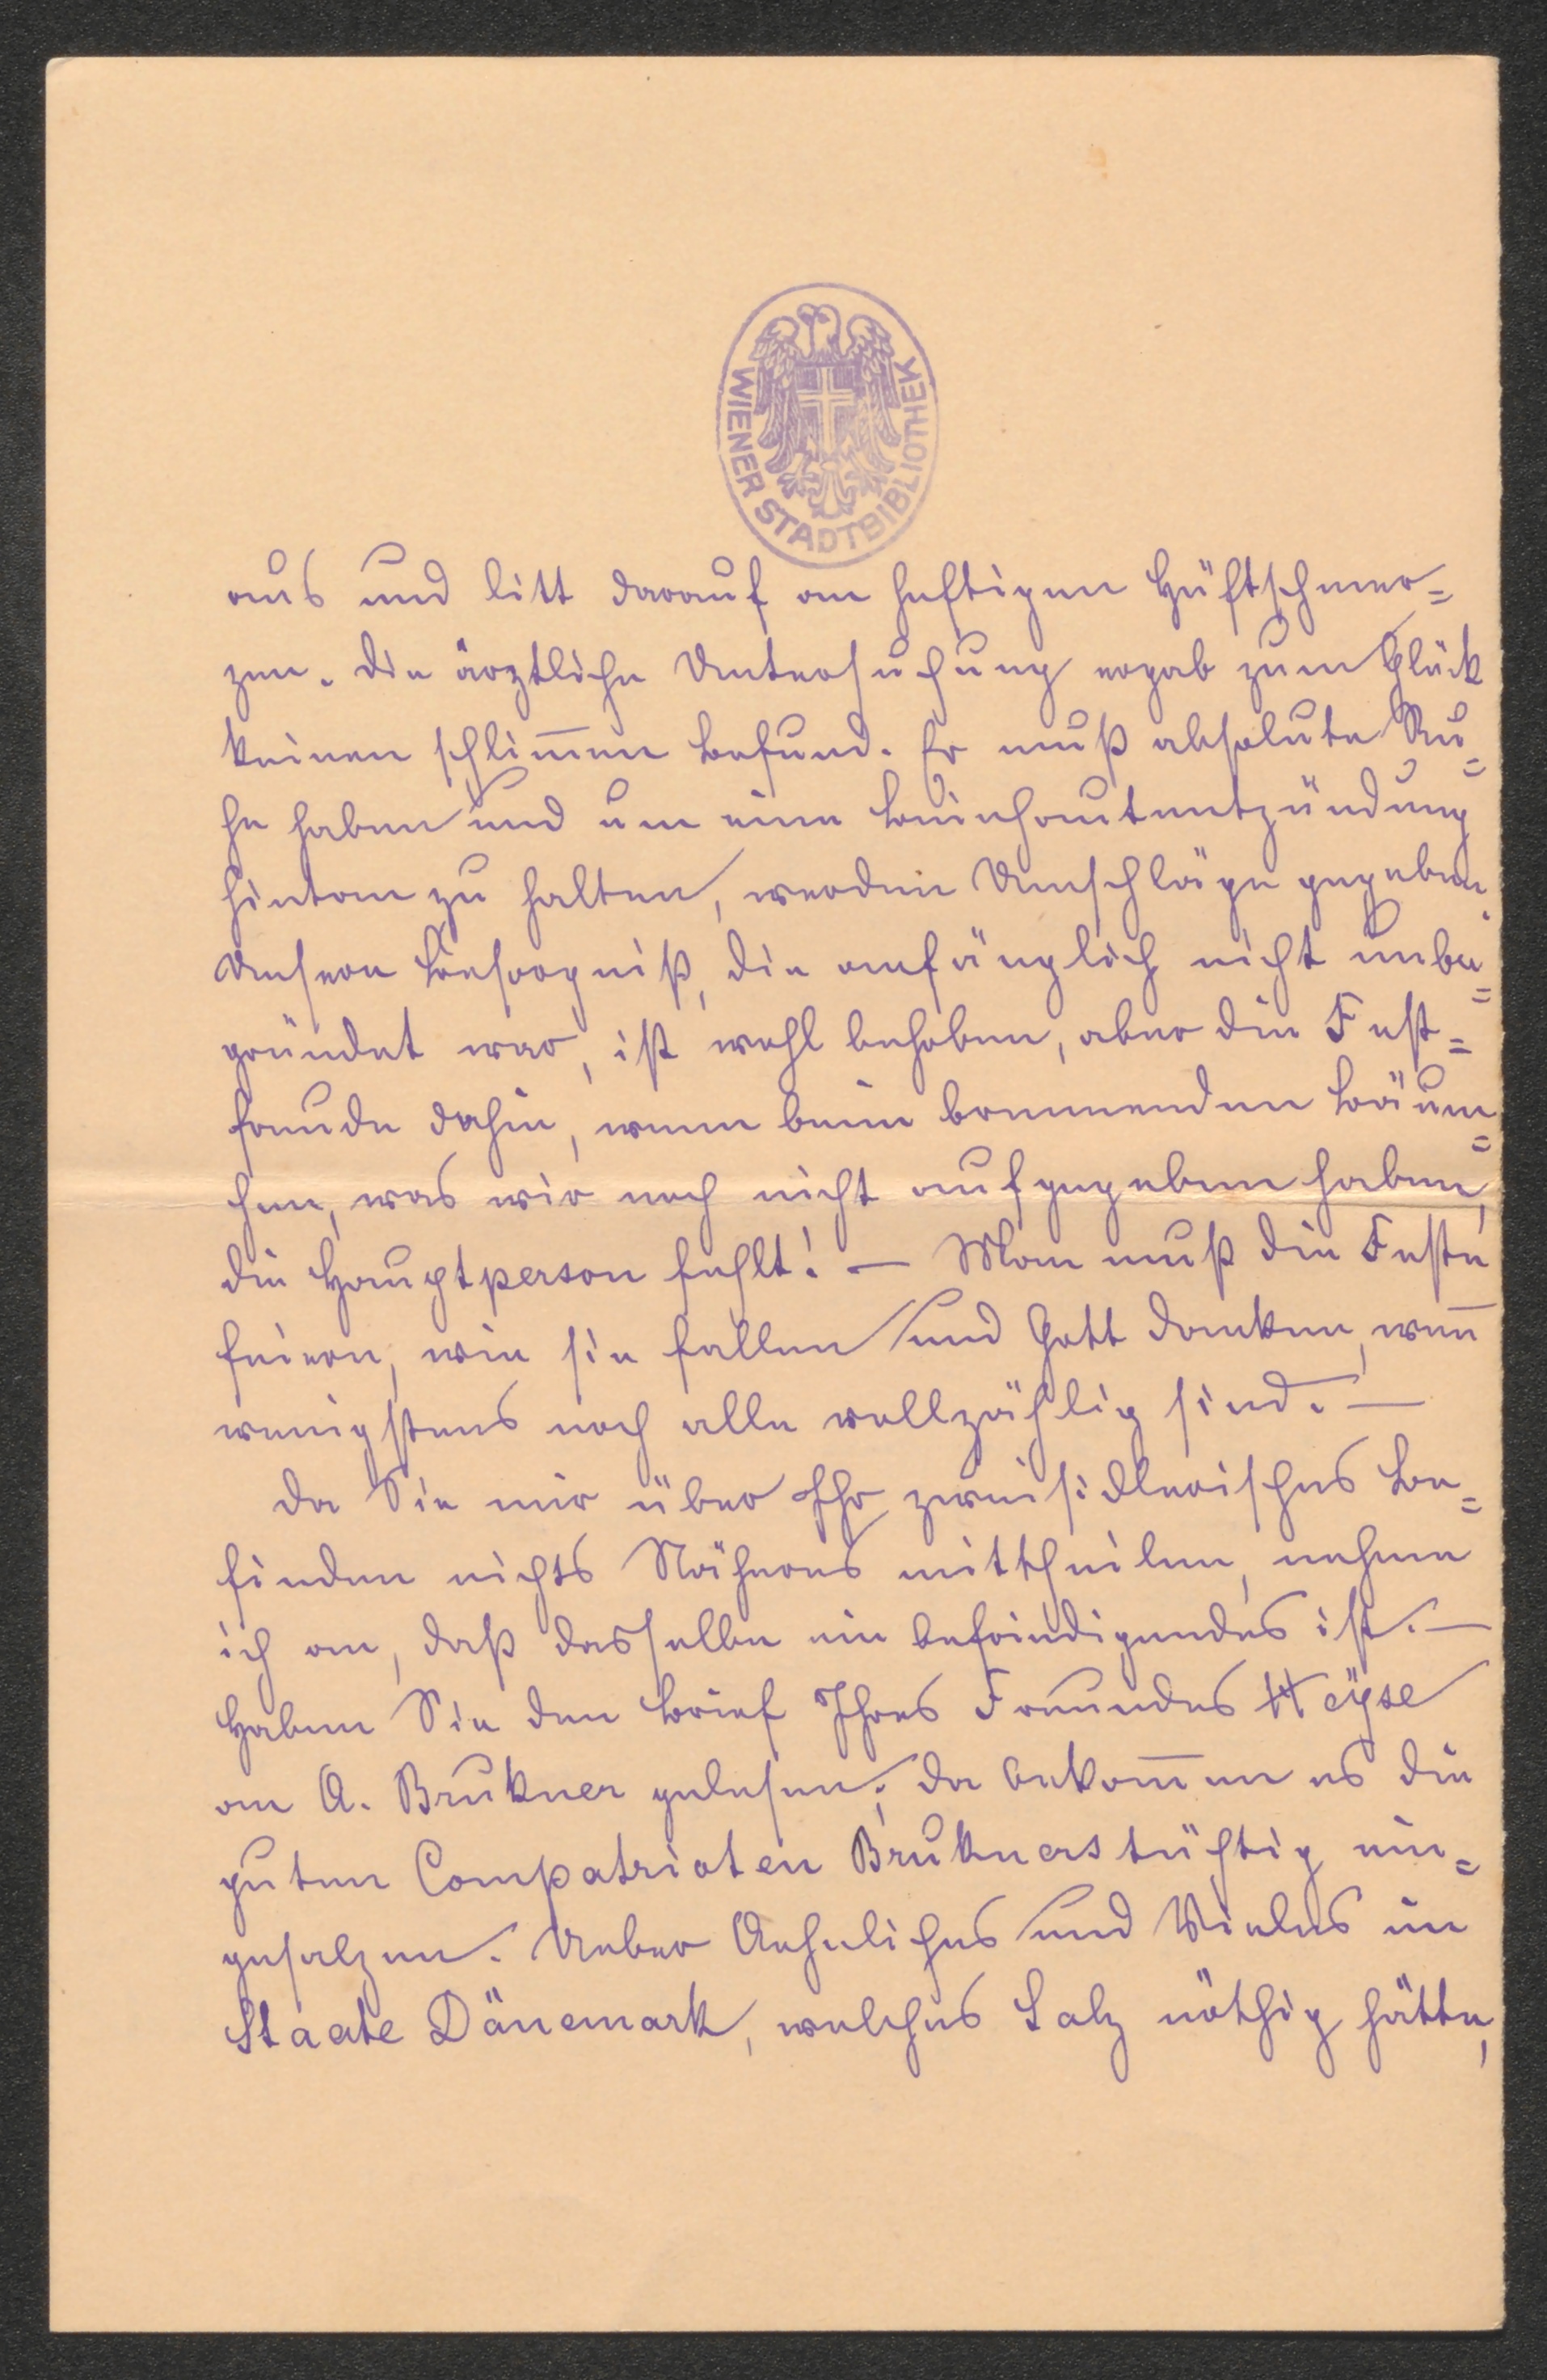 WIENER STADTBIBLIOTHEK
aus und litt darauf an heftigen Hüftschmer=
zen. Die ärztliche Untersuchung ergab zum Glück
keinen schlim̄en Befund. Er muß absolute Ru=
he haben und um eine Beinhautentzündung
hintan zu halten, werden Umschläge gegeben.
Unsere Besorgniß, die anfänglich nicht unbe=
gründet war, ist wohl behoben, aber die Fest=
freude dahin, wenn beim brennenden Bäum=
chen, was wir noch nicht aufgegeben haben,
die Hauptperson fehlt! — Man muß die Feste
feiern, wie sie fallen und Gott danken, wen̄
wenigstens noch alle vollzählig sind. —
Da Sie mir über Ihr zweisidlerisches Be=
finden nichts Näheres mittheilen, nehme
ich an, daß dasselbe ein befriedigendes ist. —
Haben Sie den Brief Ihres Freundes Heÿse
an A. Brukner gelesen; da bekom̄en es die
guten Compatrioten Brukners tüchtig ein=
gesalzen. Ueber Aehnliches und Vieles im
Staate Dänemark, welches Salz nöthig hätte,